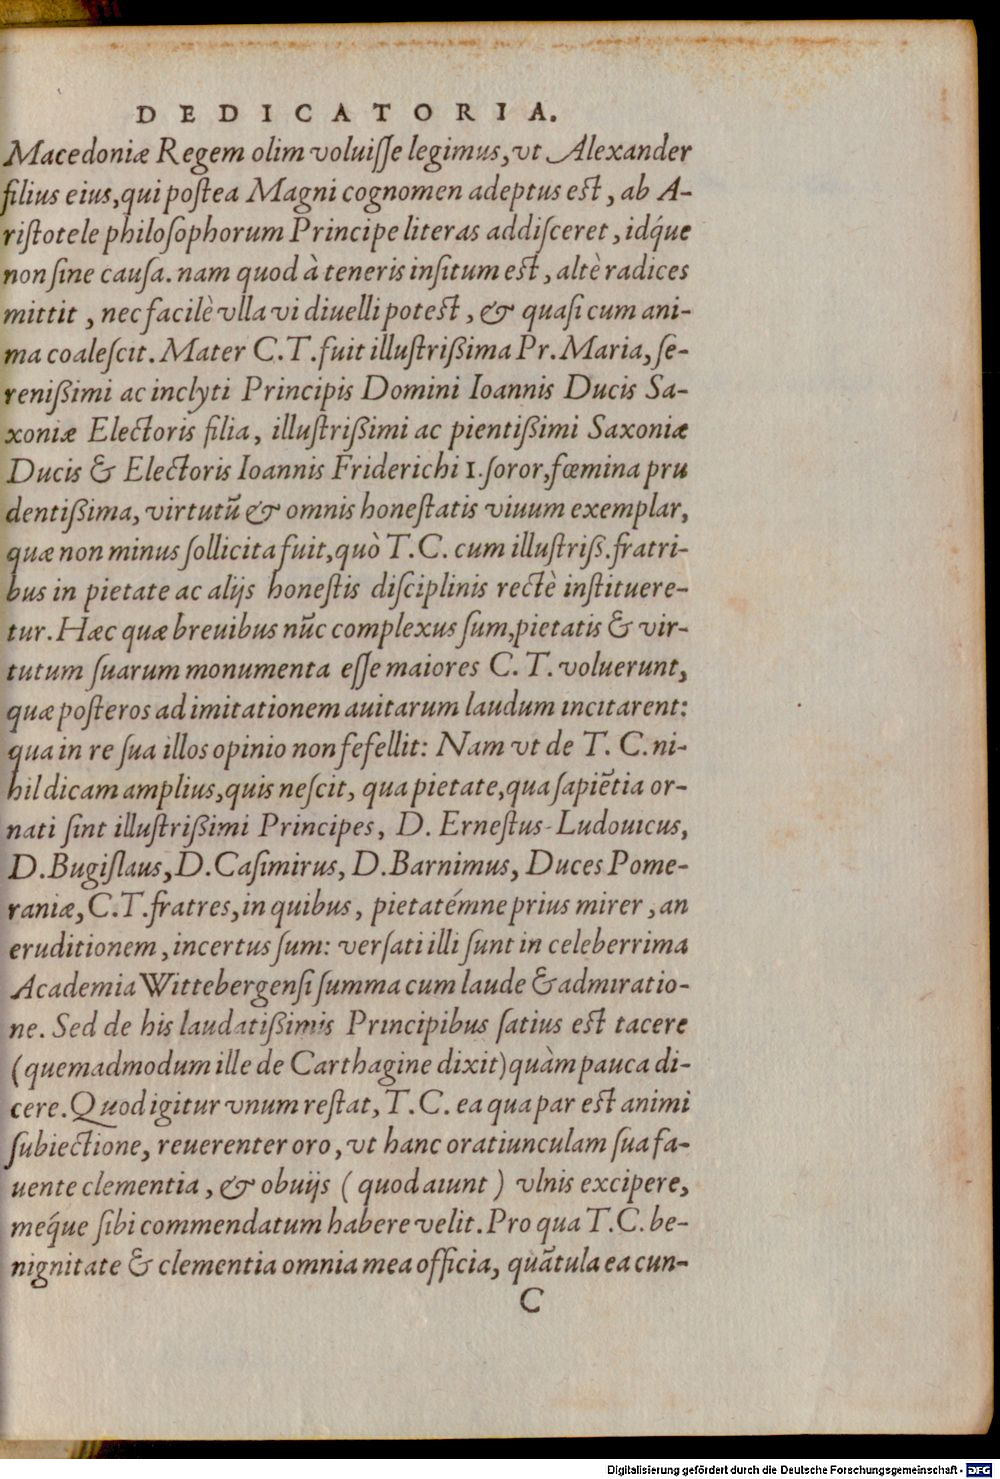 DEDICATORIA.
Macedoniæ Regem olim voluiſſe legimus, vt Alexander
filius eius, qui poſtea Magni cognomen adeptus est, ab A-
riſtotele philoſophorum Principe literas addiſceret, idq́ue
non ſine cauſa. nam quod à teneris inſitum est, altè radices
mittit, nec facilè vlla vi diuelli potest, & quaſi cum ani-
ma coaleſcit. Mater C. T. fuit illuſtrißima Pr. Maria, ſe-
renißimi ac inclyti Principis Domini Ioannis Ducis Sa-
xoniæ Electoris filia, illuſtrißimi ac pientißimi Saxoniæ
Ducis & Electoris Ioannis Friderichi 1. ſoror, fœmina pru
dentißima, virtutū & omnis honeſtatis viuum exemplar,
quæ non minus ſollicita fuit, quò T. C. cum illuſtriß. fratri-
bus in pietate ac alijs honeſtis diſciplinis rectè inſtituere-
tur. Hæc quæ breuibus nūc complexus ſum, pietatis & vir-
tutum ſuarum monumenta eſſe maiores C. T. voluerunt,
quæ poſteros ad imitationem auitarum laudum incitarent:
qua in re ſua illos opinio non fefellit: Nam vt de T. C. ni-
hil dicam amplius, quis neſcit, qua pietate, qua ſapiētia or-
nati ſint illuſtrißimi Principes, D. Erneſtus-Ludouicus,
D. Bugiſlaus, D. Caſimirus, D. Barnimus, Duces Pome-
raniæ, C. T. fratres, in quibus, pietatémne prius mirer, an
eruditionem, incertus ſum: verſati illi ſunt in celeberrima
Academia Wittebergenſi ſumma cum laude & admiratio-
ne. Sed de his laudatißimis Principibus ſatius est tacere
(quemadmodum ille de Carthagine dixit) quàm pauca di-
cere. Quod igitur vnum reſtat, T. C. ea qua par est animi
ſubiectione, reuerenter oro, vt hanc oratiunculam ſua fa-
uente clementia, & obuijs (quod aiunt) vlnis excipere,
meq́ue ſibi commendatum habere velit. Pro qua T. C. be-
nignitate & clementia omnia mea officia, quātula ea cun-
C
Digitalisierung gefördert durch die Deutsche Forschungsgemeinschaft - DFG